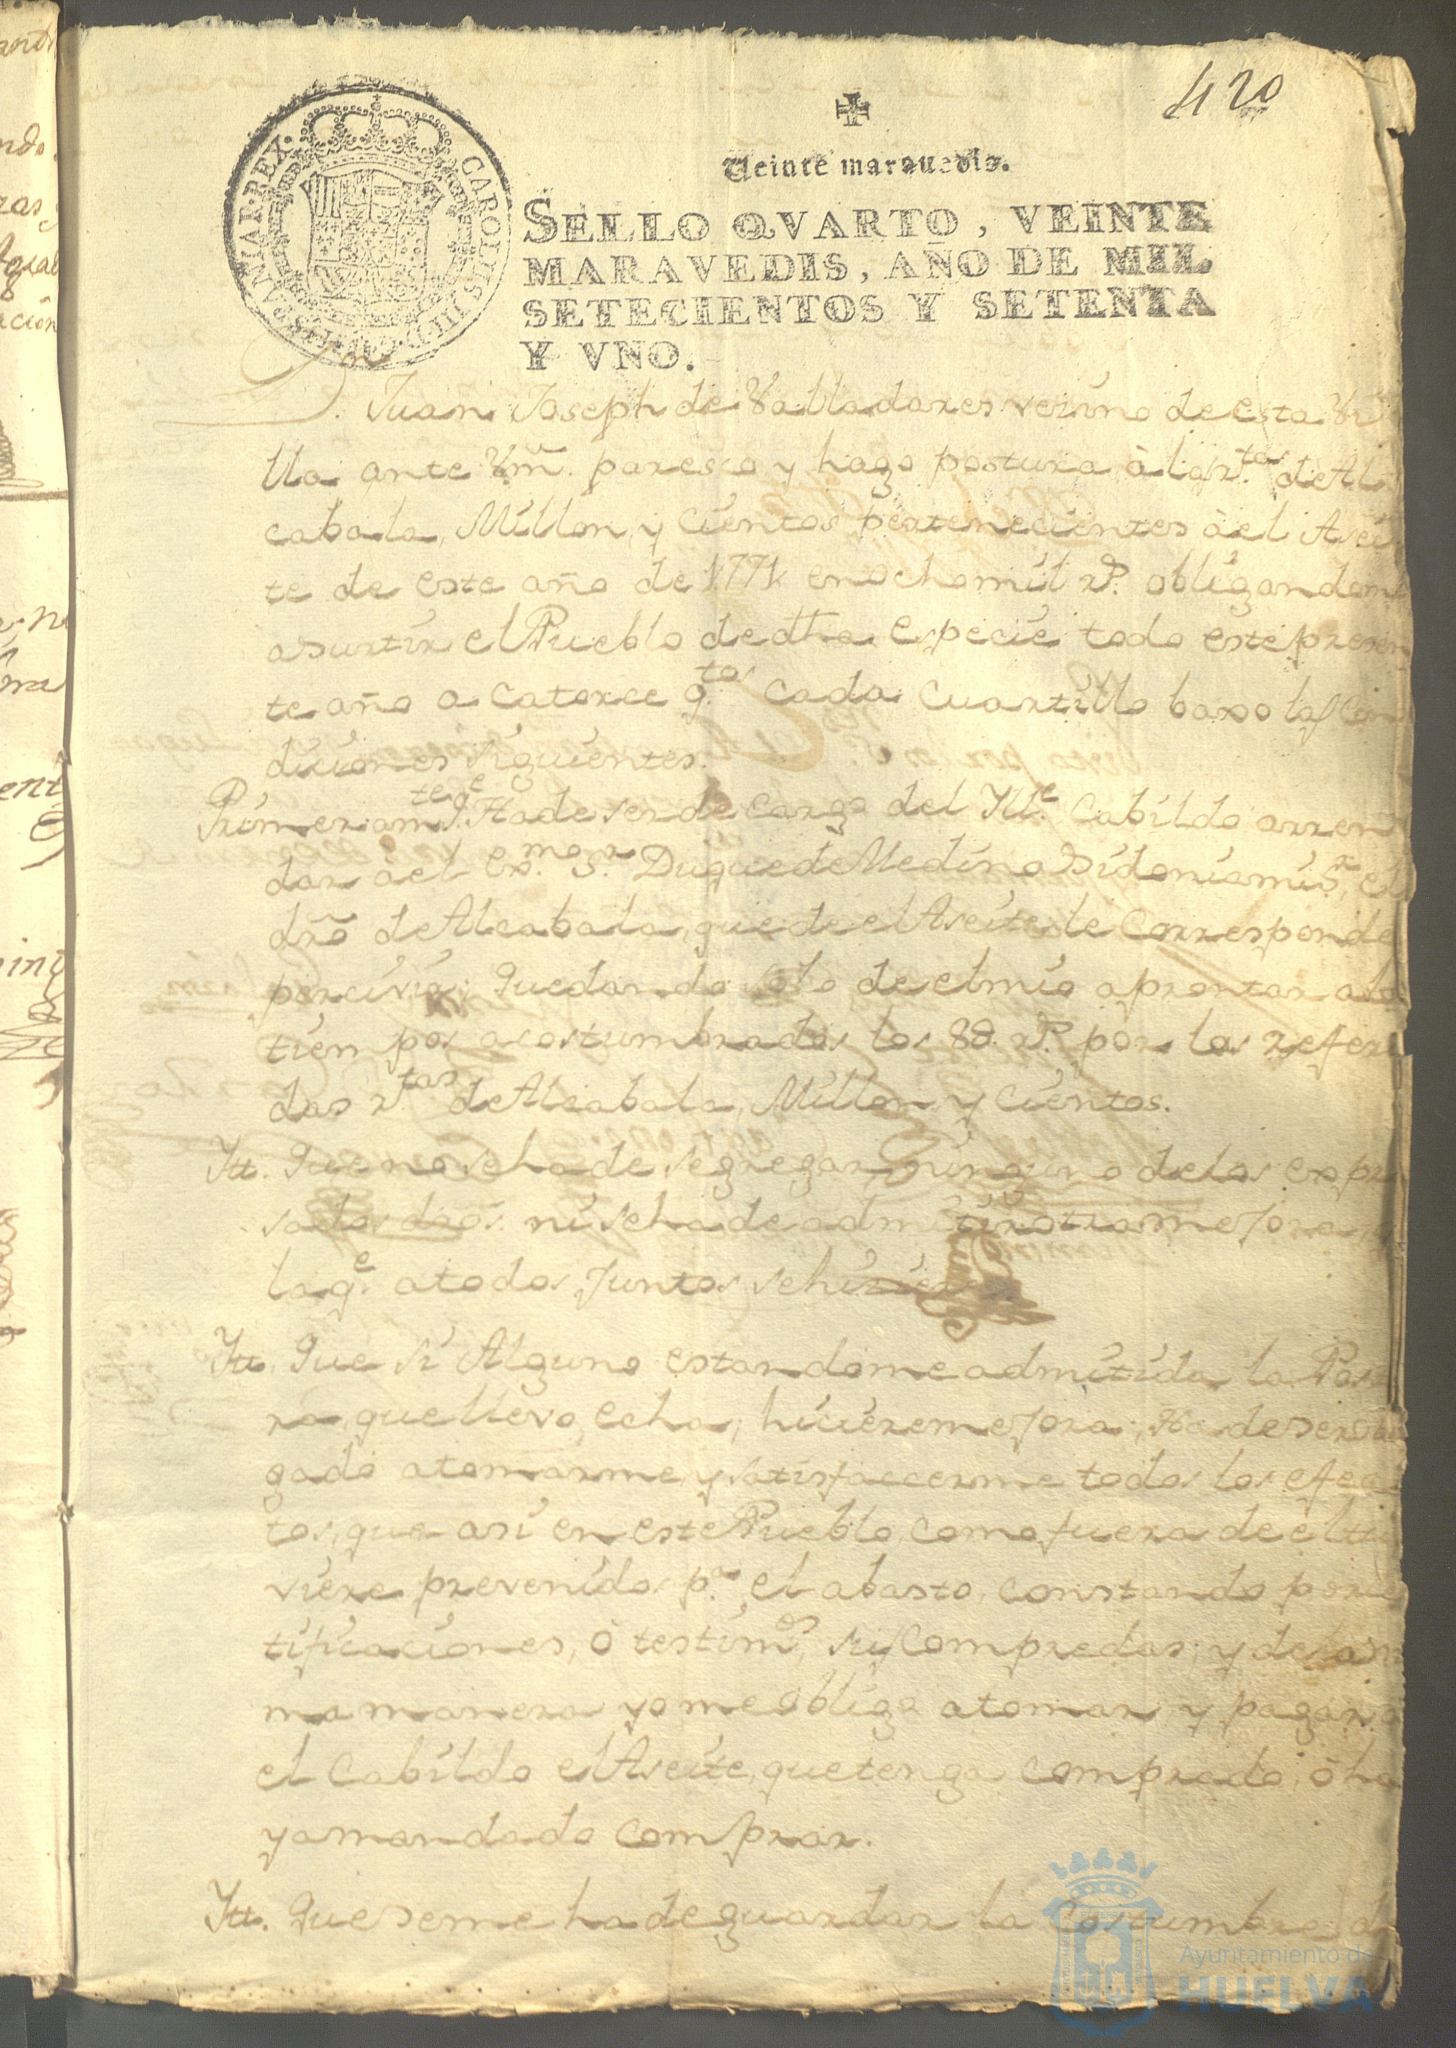 420
Veinte maravedis.
SELLO QVARTO, VEINTE
MARAVEDIS, AÑO DE MIL
SETECIENTOS Y SETENTA
Y VNO.
CAROLUS III D. G. HISPANIAR. REX.
Dn. Juan Joseph de Valladares vezino de esta Vi
lla ante Vm. paresco y hago postura à las rtas. de Al
cabala, Millon, y Cientos pertenecientes à el Asei
te de este año de 1771 en ocho mil rs. obligandome
a surtir el Pueblo de dha especie todo este presen
te año a Catorce qtos. cada Cuartillo baxo las Con
diciones siguientes.
Primeramte. qe. Ha de ser de cargo del Ille. Cabildo arren
dar à el Exmo. Sr. Duque de Medina Sidonia mi Sr. el
dro. de Alcabala, que de el Aseite le corresponde
percivir: Quedando solo de el mio aprontar a los
tiempos acostumbrados los 8U rs. por las referi
das rtas. de Alcabala, Millon, y Cientos.
Itt. Que no se ha de segregar ninguno de los expre
sados dros. ni se ha de admitir otra mejora,
la qe. a todos juntos se hiciere
Itt. Que si Alguno estandome admitida la Postu
ra, que llevo echa, hiciere mejora; Ha de ser obli
gado a tomarme, y satisfaccerme todos los efec
tos, que asi en este Pueblo, como fuera de el tu
viere prevenidos pa. el abasto, constando por cer
tificaciones, ò testimos. sus Compredas; y de la mis
ma manera yo me obligo a tomar y pagar a
el Cabildo el Aseite, que tenga comprado, ò ha
ya mandado comprar.
Itt. Que se me ha de guardar la Costumbre de
Ayuntamiento de
HUELVA